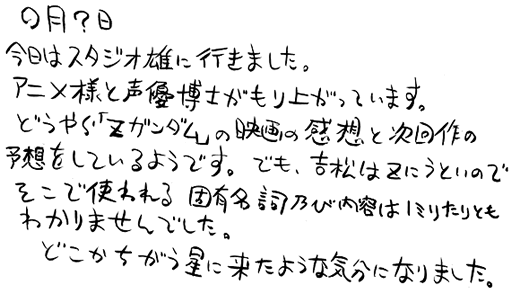 〇月？日
今日はスタジオ雄に行きました。
アニメ様と声優博士がもり上がっています。
どうやら「Zガンダム」の映画の感想と次回作の
予想をしているようです。でも、吉松はZにうといので
そこで使われる固有名詞乃び内容は1ミリたりとも
わかりませんでした。
どこかちがう星に来たような気分になりました。